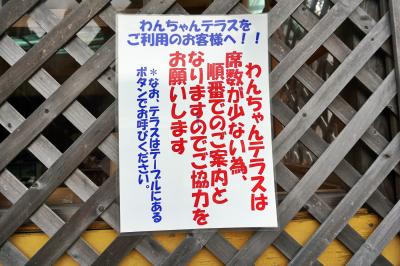 わんちゃんテラスを
ご利用のお客様へ！！
わんちゃんテラスは
席数が少ない為、
順番でのご案内と
なりますのでご協力を
お願いします
＊なお、テラスはテーブルにある
ボタンでお呼びください。